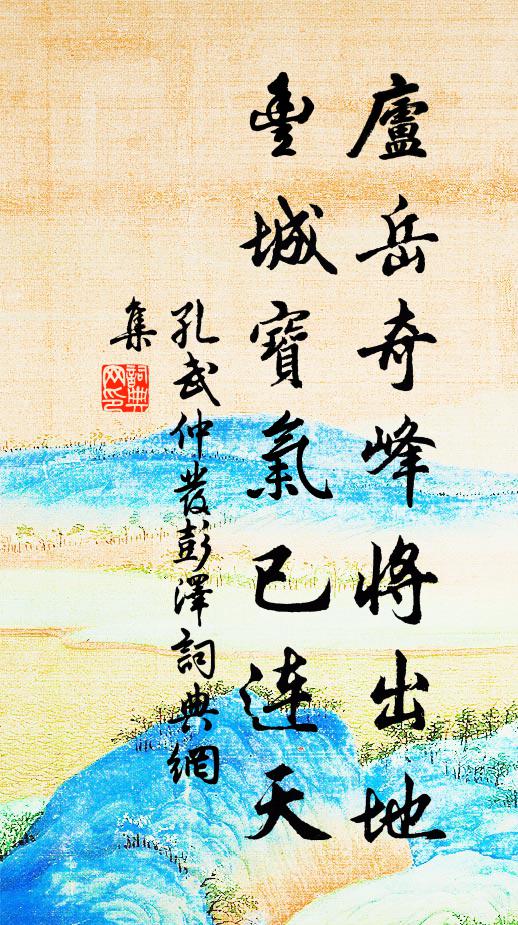 廬岳奇峰將出地
豐城寶氣已连天
孔武仲發彭澤詞典網
集
詞典
网印